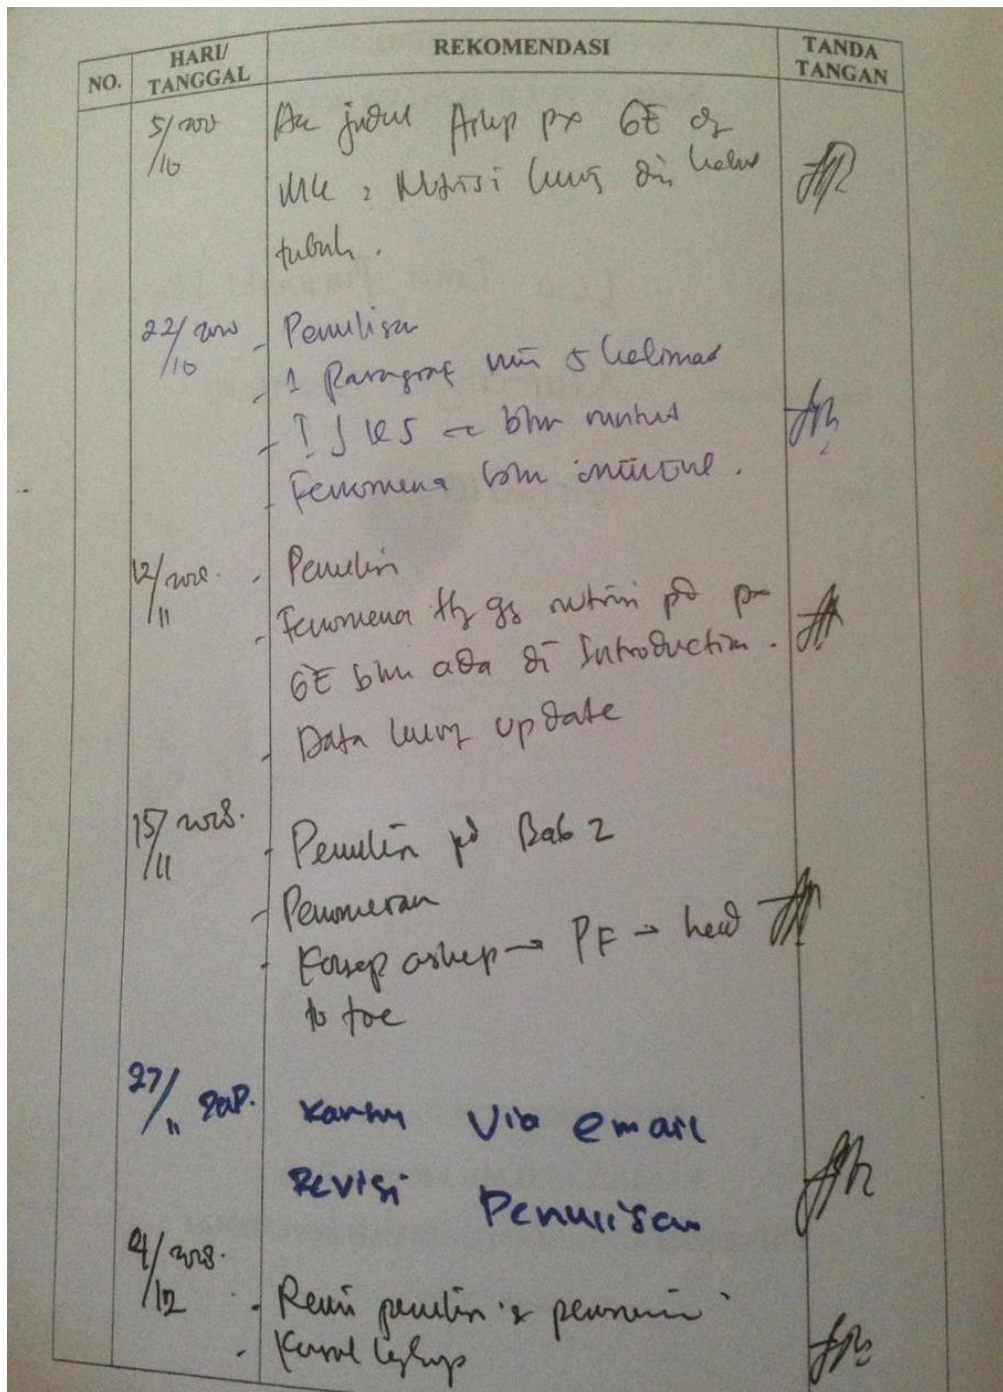 NO. HARI/ TANGGAL REKOMENDASI TANDA TANGAN
5/10 Acc judul Askep px GE dg
MK : Nutrisi kurang dri kebut
tubuh.
22/10 - Penulisan
- 1 Paragraf min 5 kalimat
- IJKS → blm runtut
- Fenomena blm muncul.
12/11 - Penulisan
- Fenomena ttg gg nutrisi pd px
GE blm ada di Introduction.
- Data kurang update
15/11 2018. - Penulisan pd Bab 2
- Penomeran
- Konsep askep → PF → head
to toe
27/11 2018. Konsul Via email
Revisi Penulisan
4/12 2018. - Revisi penulisan & penomeran
- Konsul lengkap